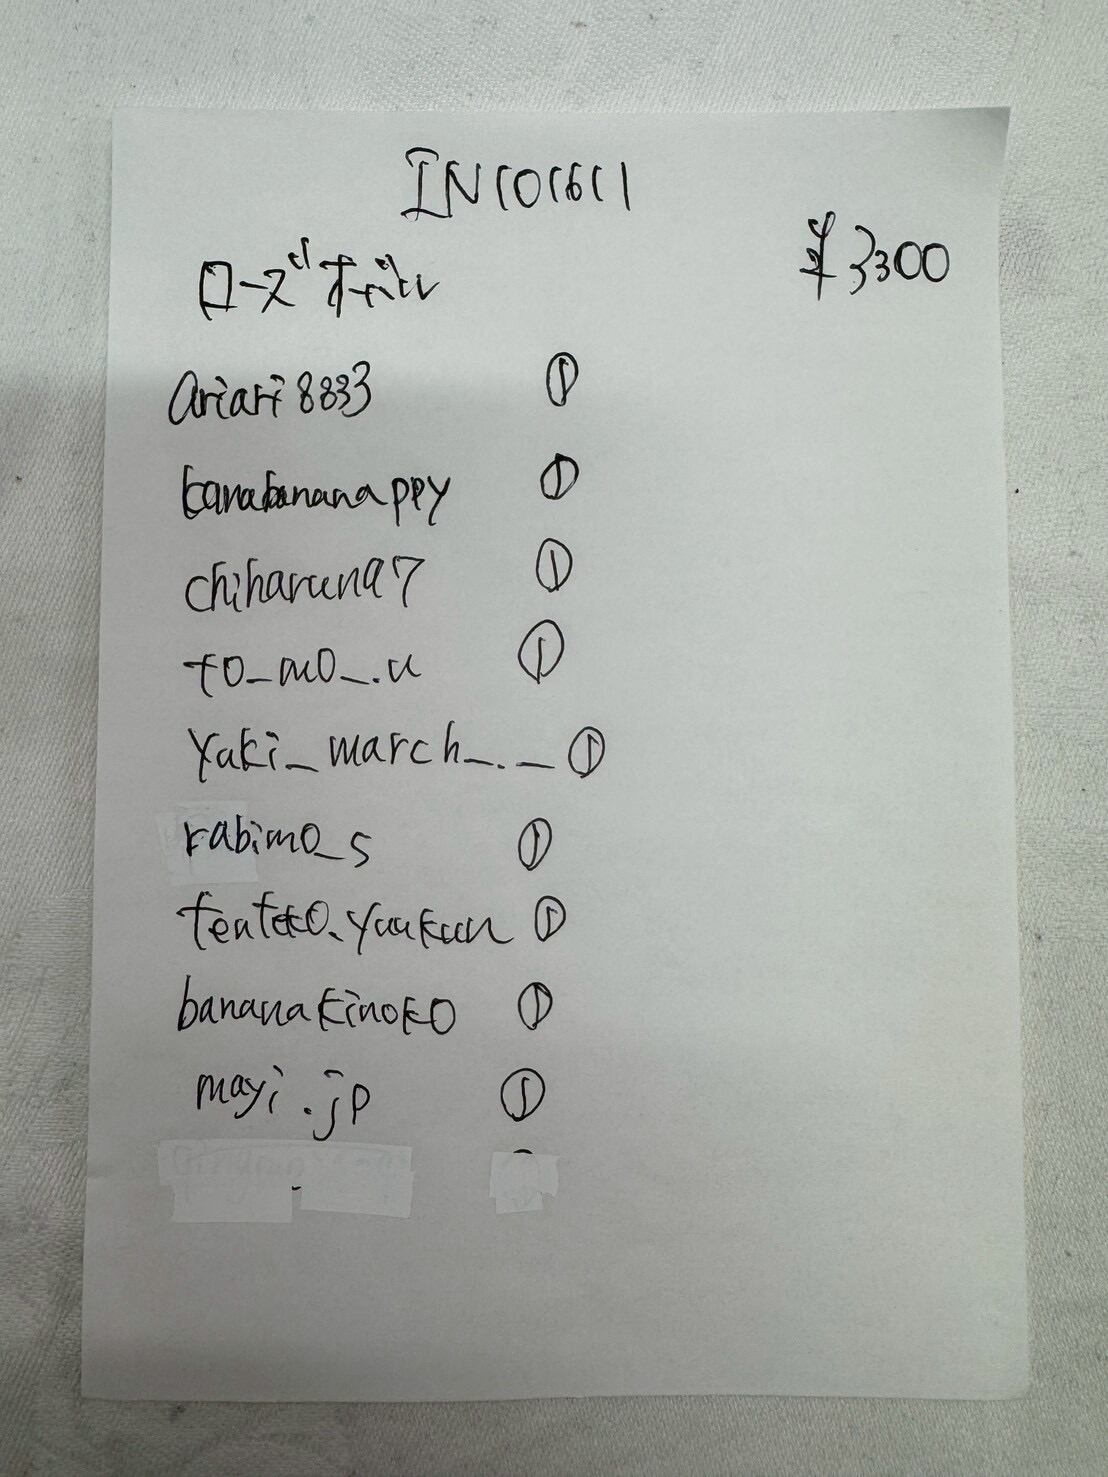 IN101611
¥3300
ローズオイル
ariari8833 ①
kanabananappy ①
chiharuna97 ①
to_mo_.u ①
yuki_march_._ ①
rabimo_s ①
tenteko.yuukun ①
bananakinoko ①
mayi.jp ①